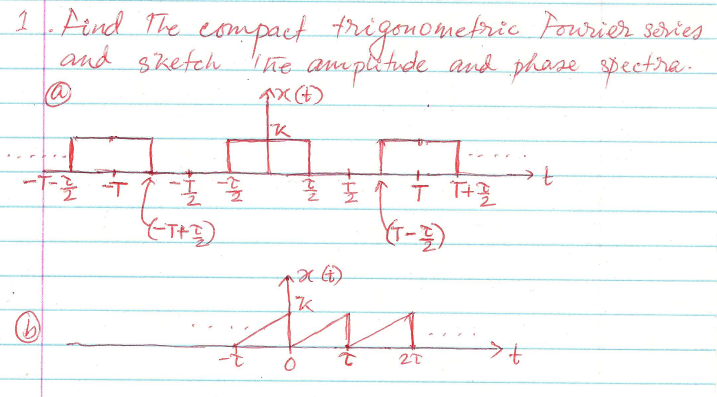 1. Find The compact trigonometric Fourier series
and sketch the amplitude and phase spectra.
(a)
x(t)
K
-T-τ/2 -T -T/2 -τ/2 τ/2 T/2 T T+τ/2 t
(-T+τ/2) (T-τ/2)
x(t)
K
(b)
-τ 0 τ 2τ t